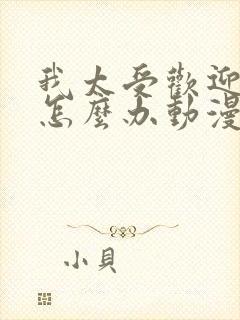 我太受歡迎
怎麼办動漫
小貝